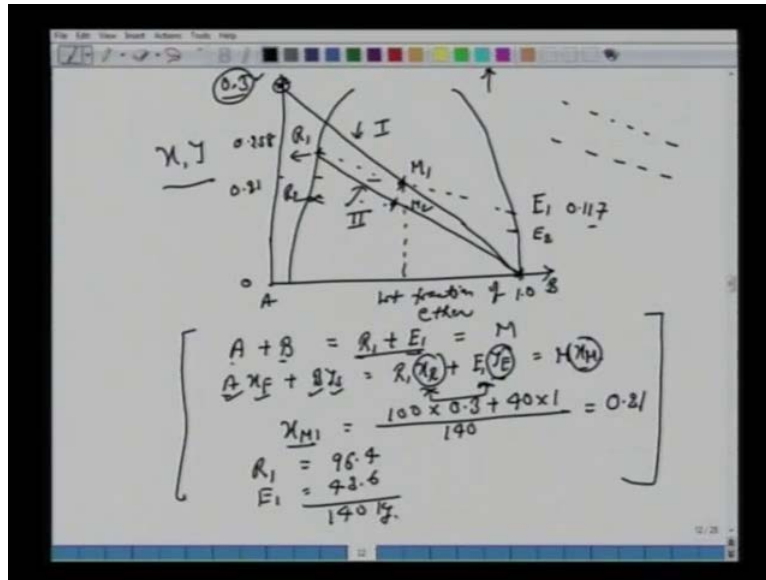 File Edit View Insert Actions Tools Help
0.3
x, y
0.258
R₁
I
M₁
0.21
R₂
II
M₂
E₁ 0.117
E₂
0
A
wt fraction of 1.0 B
ether
A + B = R₁ + E₁ = M
A x_F + B y_s = R₁ x_R + E₁ y_E = M x_M
x_M1 = 100 × 0.3 + 40 × 1 / 140 = 0.21
R₁ = 96.4
E₁ = 43.6
140 kg.
12/25
12